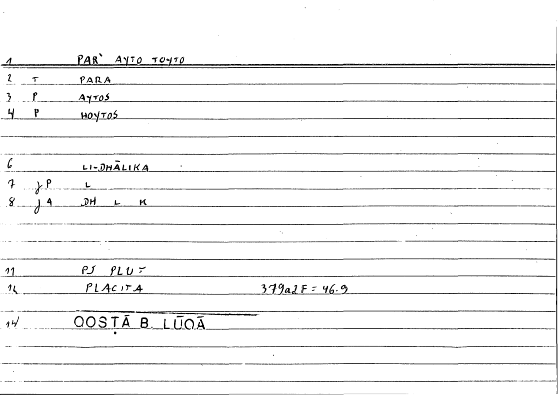 1 PAR' AYTO TOYTO
2 T PARA
3 P AYTOS
4 P HOYTOS
6 LI-DHĀLIKA
7 jP L
8 jA DH L K
11 PS PLUT
12 PLACITA 379a2F = 46.9
14 QOSṬĀ B. LŪQĀ